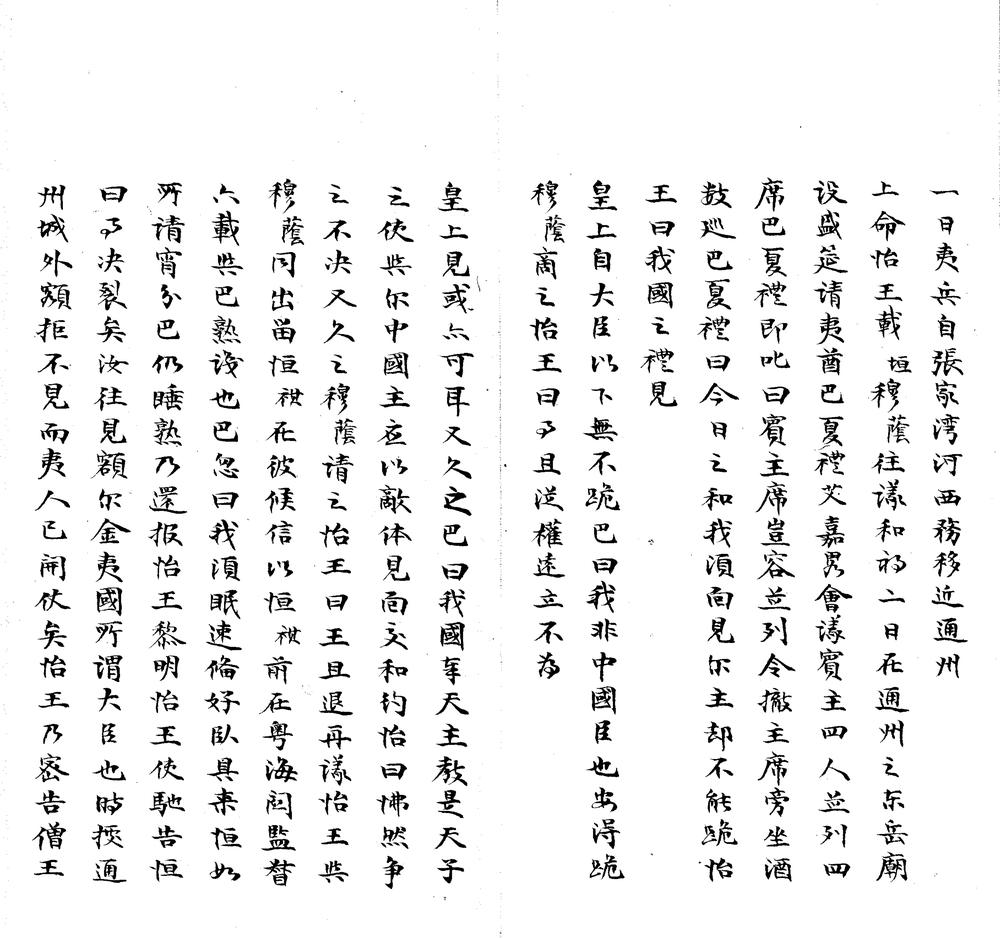 一日夷兵自張家湾河西務移近通州
上命怡王載垣穆蔭往議和初二日在通州之东岳廟
设盛筵请夷酋巴夏禮艾嘉畧會議賓主四人並列四
席巴夏禮即叱曰賓主席豈容並列令撤主席旁坐酒
数巡巴夏禮曰今日之和我須面見尔主却不能跪怡
王曰我國之禮見
皇上自大臣以下無不跪巴曰我非中國臣也安得跪
穆蔭商之怡王曰事且从權遠立不為
皇上見或亦可耳又久之巴曰我國奉天主教是天子
之使与尔中國主应以敵体見面交和约怡曰怫然争
之不决又久之穆蔭请之怡王曰王且退再議怡王与
穆蔭同出留恒祺在彼候信以恒祺前在粤海関監督
六載与巴熟識也巴忽曰我須眠速俻好臥具来恒如
所请宵分巴仍睡熟乃還报怡王黎明怡王使馳告恒
曰事决裂矣汝往見額尔金夷國所謂大臣也時㨿通
州城外額拒不見而夷人已開仗矣怡王乃密告僧王